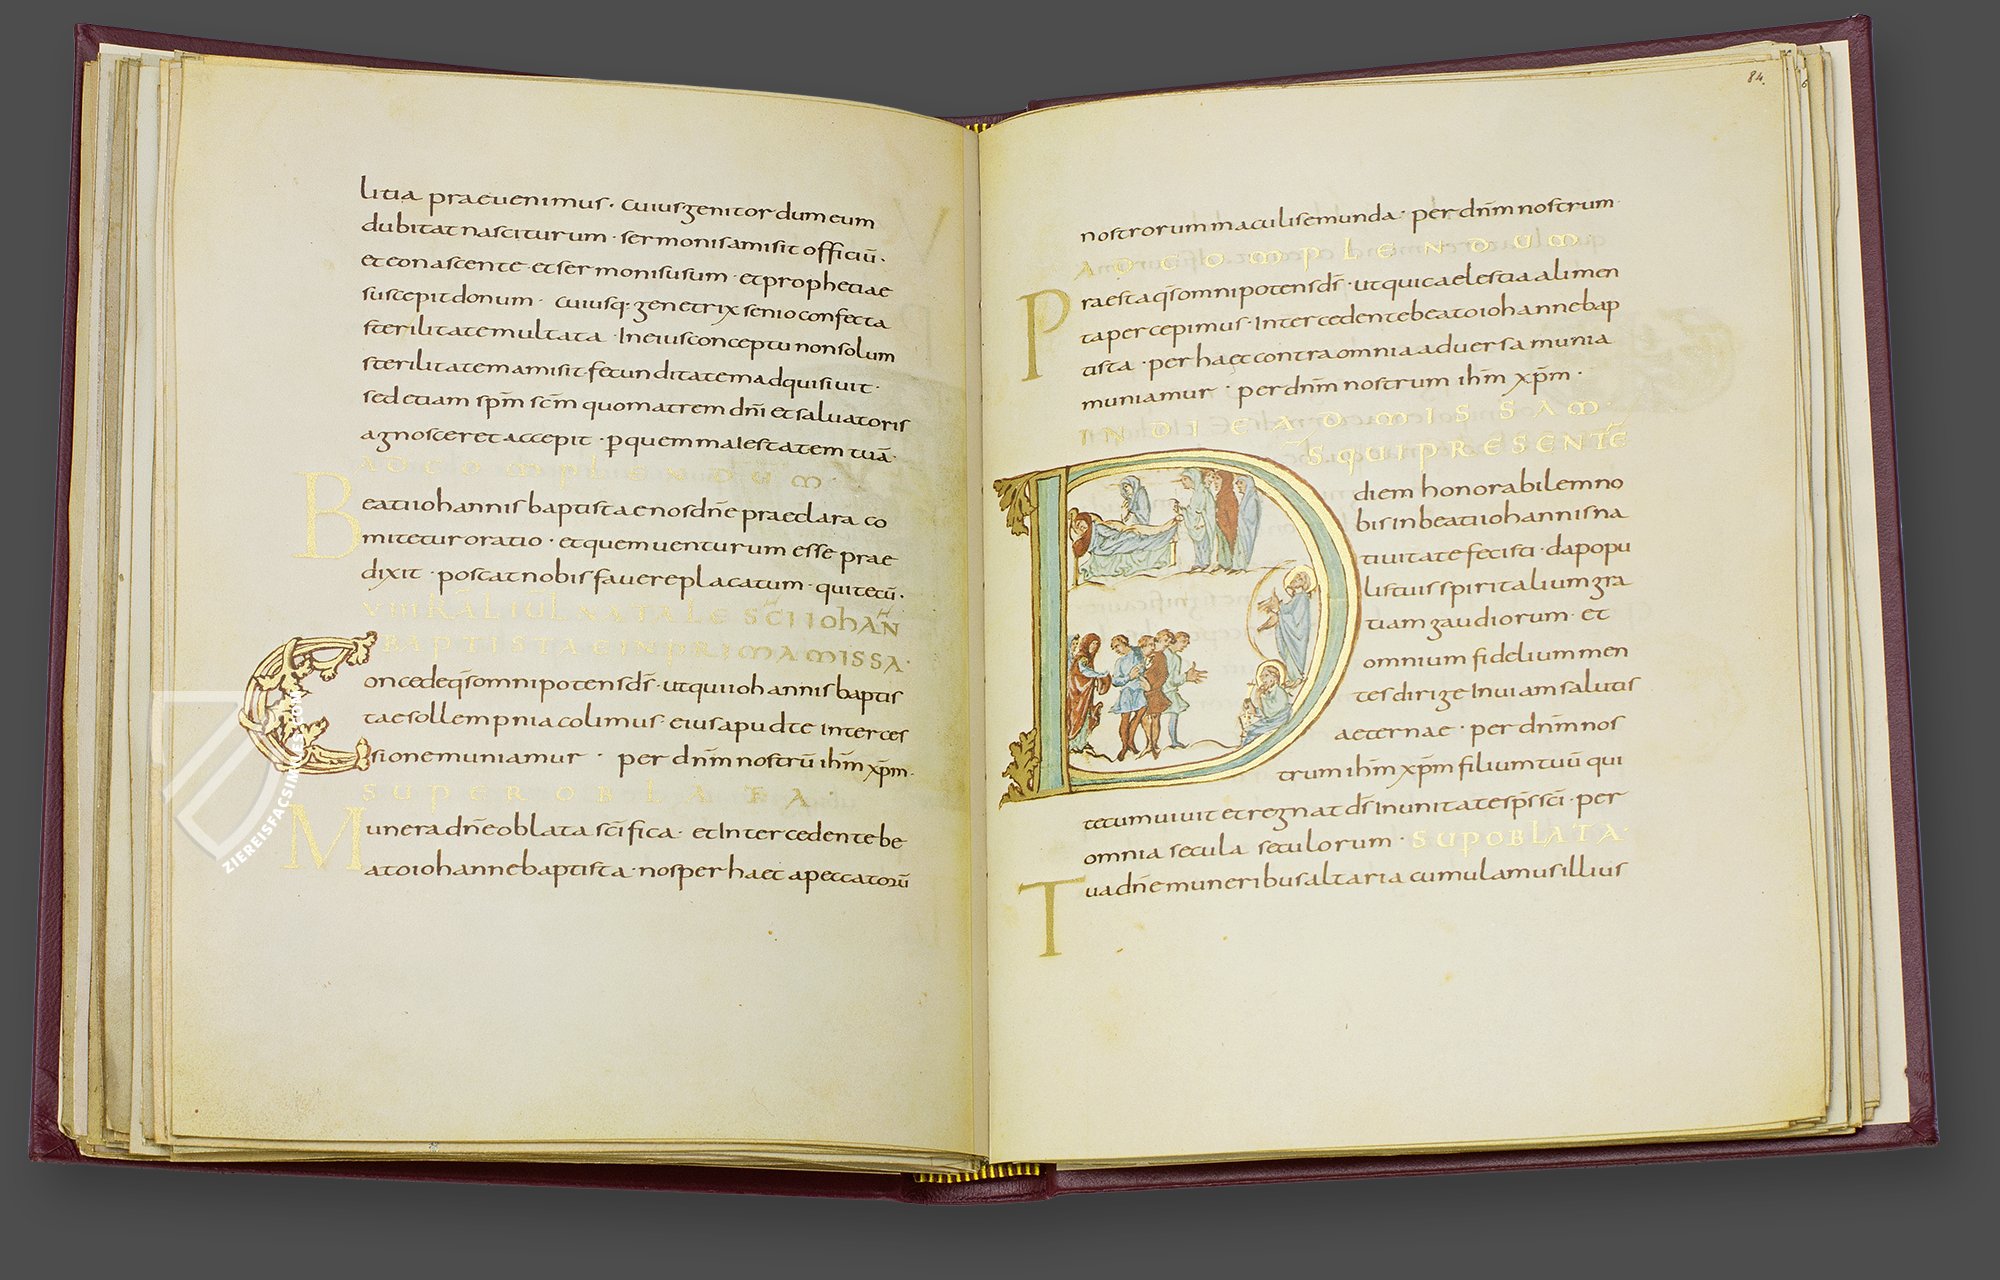 litia praevenimus · cuius genitor dum eum
dubitat nasciturum · sermonis amisit officiū ·
et eo nascente · et sermonis usum · et prophetiae
suscepit donum · cuiusq; genetrix senio confecta
sterilitate multata · In eius conceptu non solum
sterilitatem amisit fecunditatem adquisivit ·
sed etiam sp̄m sc̄m quo matrem dn̄i et salvatoris
agnosceret accepit · ꝑ quem maiestatem tuā ·
AD COMPLENDUM ·
Beati iohannis baptistae nos dn̄e praeclara co
mitetur oratio · et quem venturum esse prae
dixit · poscat nobis favere placatum · qui tecū ·
VIII KAL IUL NATALE SCI IOHAN
BAPTISTAE IN PRIMA MISSA ·
Concede qs̄ omnipotens ds̄ · ut qui iohannis baptis
tae sollempnia colimus · eius apud te interces
sione muniamur · per dn̄m nostrū ih̄m xp̄m ·
SUPER OBLATA ·
Munera dn̄e oblata sc̄ifica · et Intercedente be
ato iohanne baptista · nos per haec a peccatorū
84.
nostrorum maculis emunda · per dn̄m nostrum ·
AD COMPLENDUM ·
Praesta qs̄ omnipotens ds̄ · ut qui caelestia alimen
ta percepimus · Intercedente beato iohanne bap
tista · per haec contra omnia adversa munia
muniamur · per dn̄m nostrum ih̄m xp̄m ·
IN DIE AD MISSAM ·
D̄S QUI PRESENTĒ
diem honorabilem no
bis in beati iohannis na
tivitate fecisti · da popu
lis tuis spiritalium gra
tiam gaudiorum · et
omnium fidelium men
tes dirige In viam salutis
aeternae · per dn̄m nos
trum ih̄m xp̄m filium tuū qui
tecum vivit et regnat ds̄ In unitate sp̄s sc̄i · per
omnia secula seculorum · SUP OBLATA ·
Tua dn̄e muneribus altaria cumulamus illius
ZIEREISFACSIMILES.COM